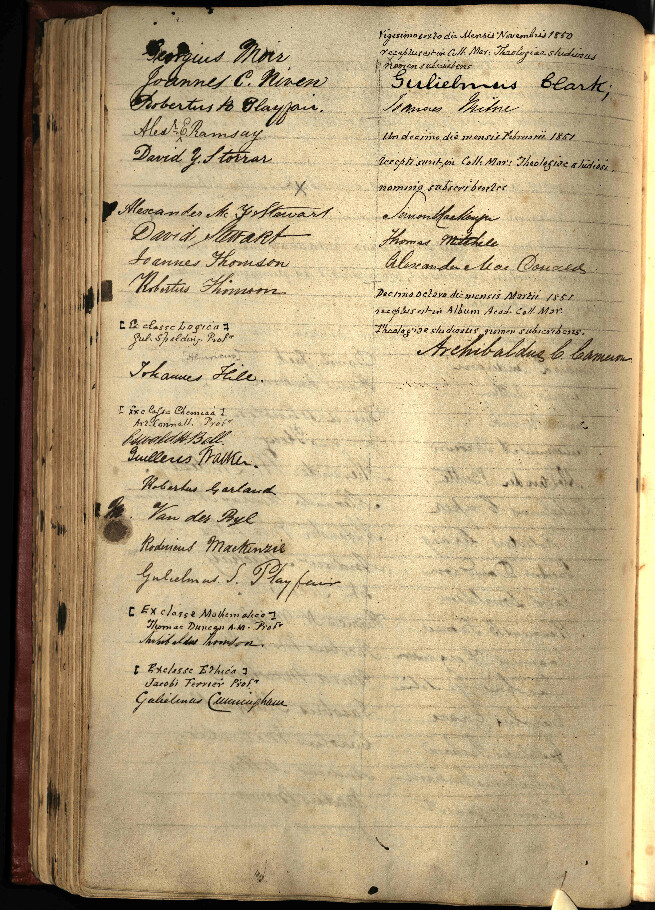 Georgius Moir
Joannes C. Niven
Robertus B Playfair.
Alexr E Ramsay
David Y. Storrar
X
Alexander Mc Y Stewart
David Stewart
Joannes Thomson
Robertus Thomson
[ E classe Logica ]
Gul. Spalding Profr
Johannes Hill.
[ Ex classe Chemica ]
Art. Connell. Profr
Oswald H Bell
Guillerus Walker.
Robertus Garland
Van der Byl
Rodericus Mackenzie
Gulielmus S. Playfair
[ Ex classe Mathematica ]
Thomas Duncan A.M. Profr
Archibaldus Thomson.
[ Ex classe Ethica ]
Jacobi Ferrier Profr
Gulielmus Cunningham
Vigesimo sexto die Mensis Novembris 1850
receptus est in Coll. Mar. Theologiae studiosus
nomen subscribens
Gulielmus Clark;
Milne
Undecimo die mensis Februarii 1851
recepti sunt in Coll. Mar: Theologiae studiosi
nomina subscribentes
Simon Mackenzie
Thomas Mitchell
Alexander Mac Donald
Decimo octavo die mensis Martii 1851
receptus est in Album Acad. Coll. Mar.
Theologiae studiosus nomen subscribens.
Archibaldus C. Cameron